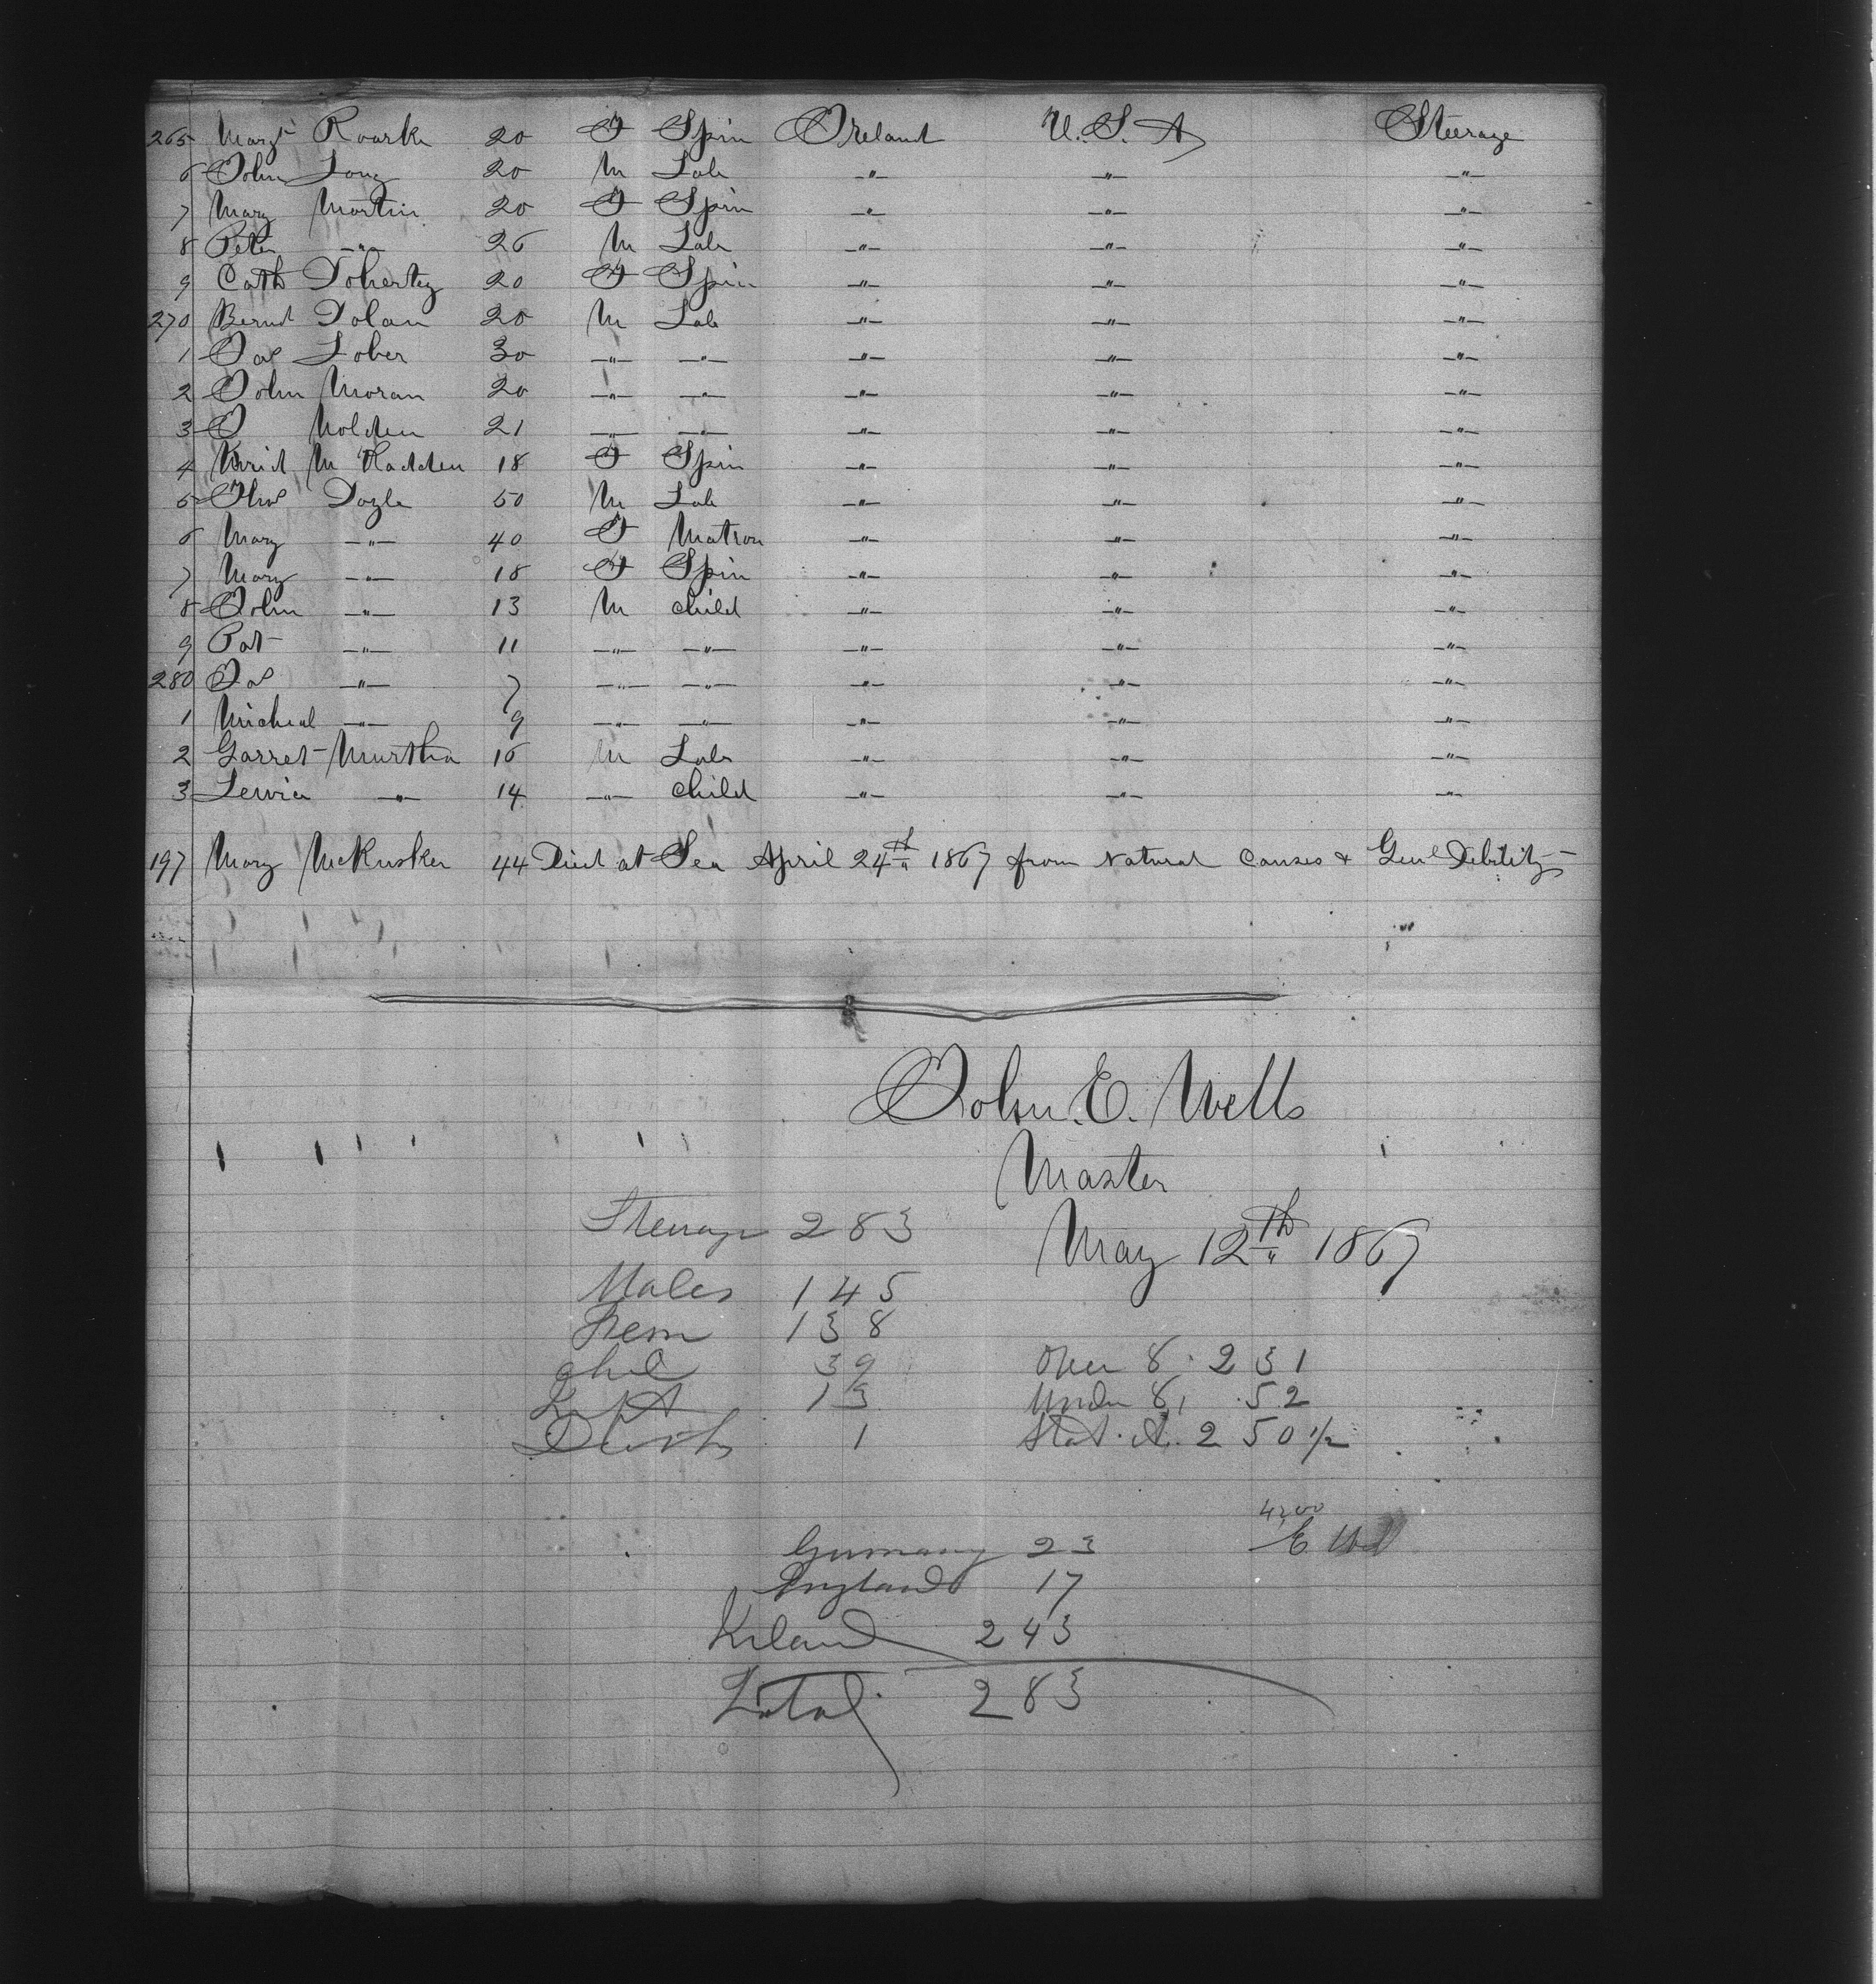 265 Margt Roark 20 F Spin Ireland U.S.A Steerage
6 John Long 20 M Lab -"- -"- -"-
7 Mary Martin 20 F Spin -"- -"- -"-
8 Peter -"- 26 M Lab -"- -"- -"-
9 Cath Doherty 20 F Spin -"- -"- -"-
270 Bernd Dolan 20 M Lab -"- -"- -"-
1 Jas Lober 30 -"- -"- -"- -"- -"-
2 John Moran 20 -"- -"- -"- -"- -"-
3 J Holden 21 -"- -"- -"- -"- -"-
4 M Madden 18 F Spin -"- -"- -"-
5 Thos Doyle 50 M Lab -"- -"- -"-
6 Mary -"- 40 F Matron -"- -"- -"-
7 Mary -"- 18 F Spin -"- -"- -"-
8 John -"- 13 M child -"- -"- -"-
9 Pat -"- 11 -"- -"- -"- -"- -"-
280 Jas -"- 7 -"- -"- -"- -"- -"-
1 Micheal -"- 9 -"- -"- -"- -"- -"-
2 Garret Murtha 16 M Lab -"- -"- -"-
3 -"- 14 -"- child -"- -"- -"-
197 Mary McKusker 44 Died at Sea April 24th 1867 from Natural Causes & Genl Debility
John. E. Wells
Master
May 12th 1867
Steerage 283
Males 145
Fem 138
chil 39
Inft 13
Death 1
Over 8. 231
Under 8, 52
Stat. A. 250 1/2
Germany 23
England 17
Ireland 243
Total 283